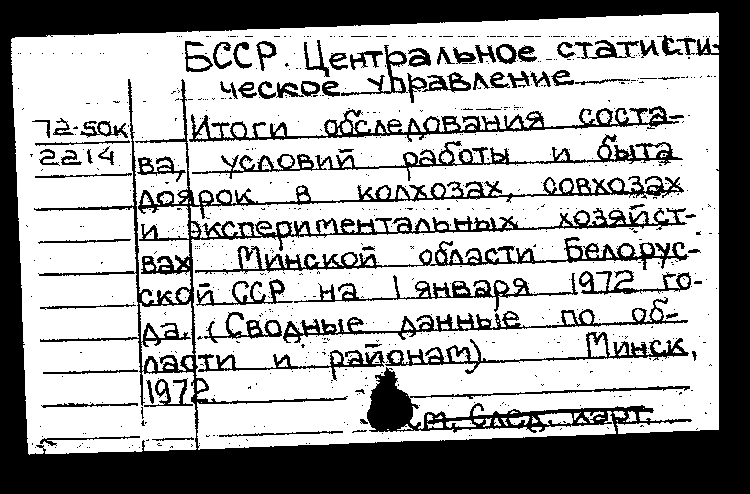 БССР. Центральное статисти-
ческое управление
72-50к
2214
Итоги обследования соста-
ва, условий работы и быта
доярок в колхозах, совхозах
и экспериментальных хозяйст-
вах Минской области Белорус-
ской ССР на 1 января 1972 го-
да. (Сводные данные по об-
ласти и районам). Минск,
1972.
см. след. карт.